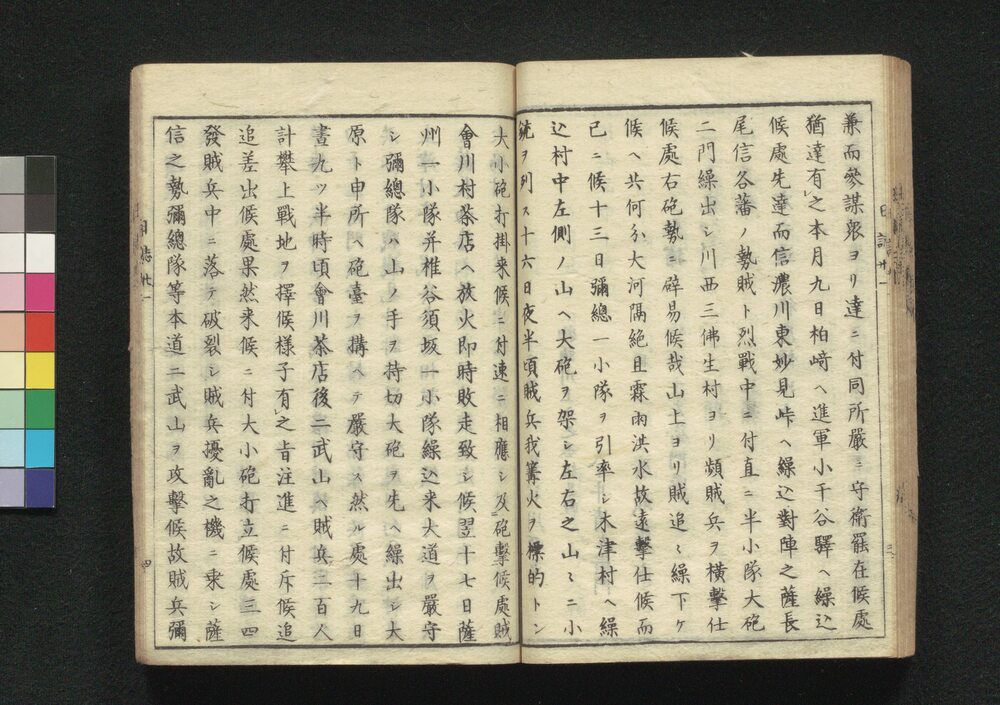 兼而參謀衆ヨリ達ニ付同所嚴ニ守衛罷在候處
猶達有之本月九日柏﨑ヘ進軍小千谷驛ヘ繰込
候處先達而信濃川東妙見峠ヘ繰込對陣之薩長
尾信各藩ノ勢賊ト烈戰中ニ付直ニ半小隊大砲
二門繰出シ川西三佛生村ヨリ頻賊兵ヲ横擊仕
候處右砲勢ニ辟易候哉山上ヨリ賊追〻繰下ケ
候ヘ共何分大河隔絶且霖雨洪水故遠擊仕候而
已ニ候十三日彌總一小隊ヲ引率シ木津村ヘ繰
込村中左側ノ山ヘ大砲ヲ架シ左右之山〻ニ小
銃ヲ列ス十六日夜半頃賊兵我篝火ヲ標的トシ
大小砲打掛来候ニ付速ニ相應シ及砲擊候處賊
會川村茶店ヘ放火即時敗走致シ候翌十七日薩
州一小隊并椎谷須坂一小隊繰込来大道ヲ嚴守
シ彌總隊ハ山ノ手ヲ持切大砲ヲ先ヘ繰出シ大
原ト申所ヘ砲臺ヲ搆ヘテ嚴守ス然ル處十九日
晝九ツ半時頃會川茶店後二武山ヘ賊兵二百人
計攀上戰地ヲ擇候様子有之旨注進ニ付斥候追
追差出候處果然来候ニ付大小砲打立候處三四
發賊兵中ニ落テ破裂シ賊兵擾亂之機ニ乘シ薩
信之勢彌總隊等本道二武山ヲ攻擊候故賊兵彌
日誌廿一
四